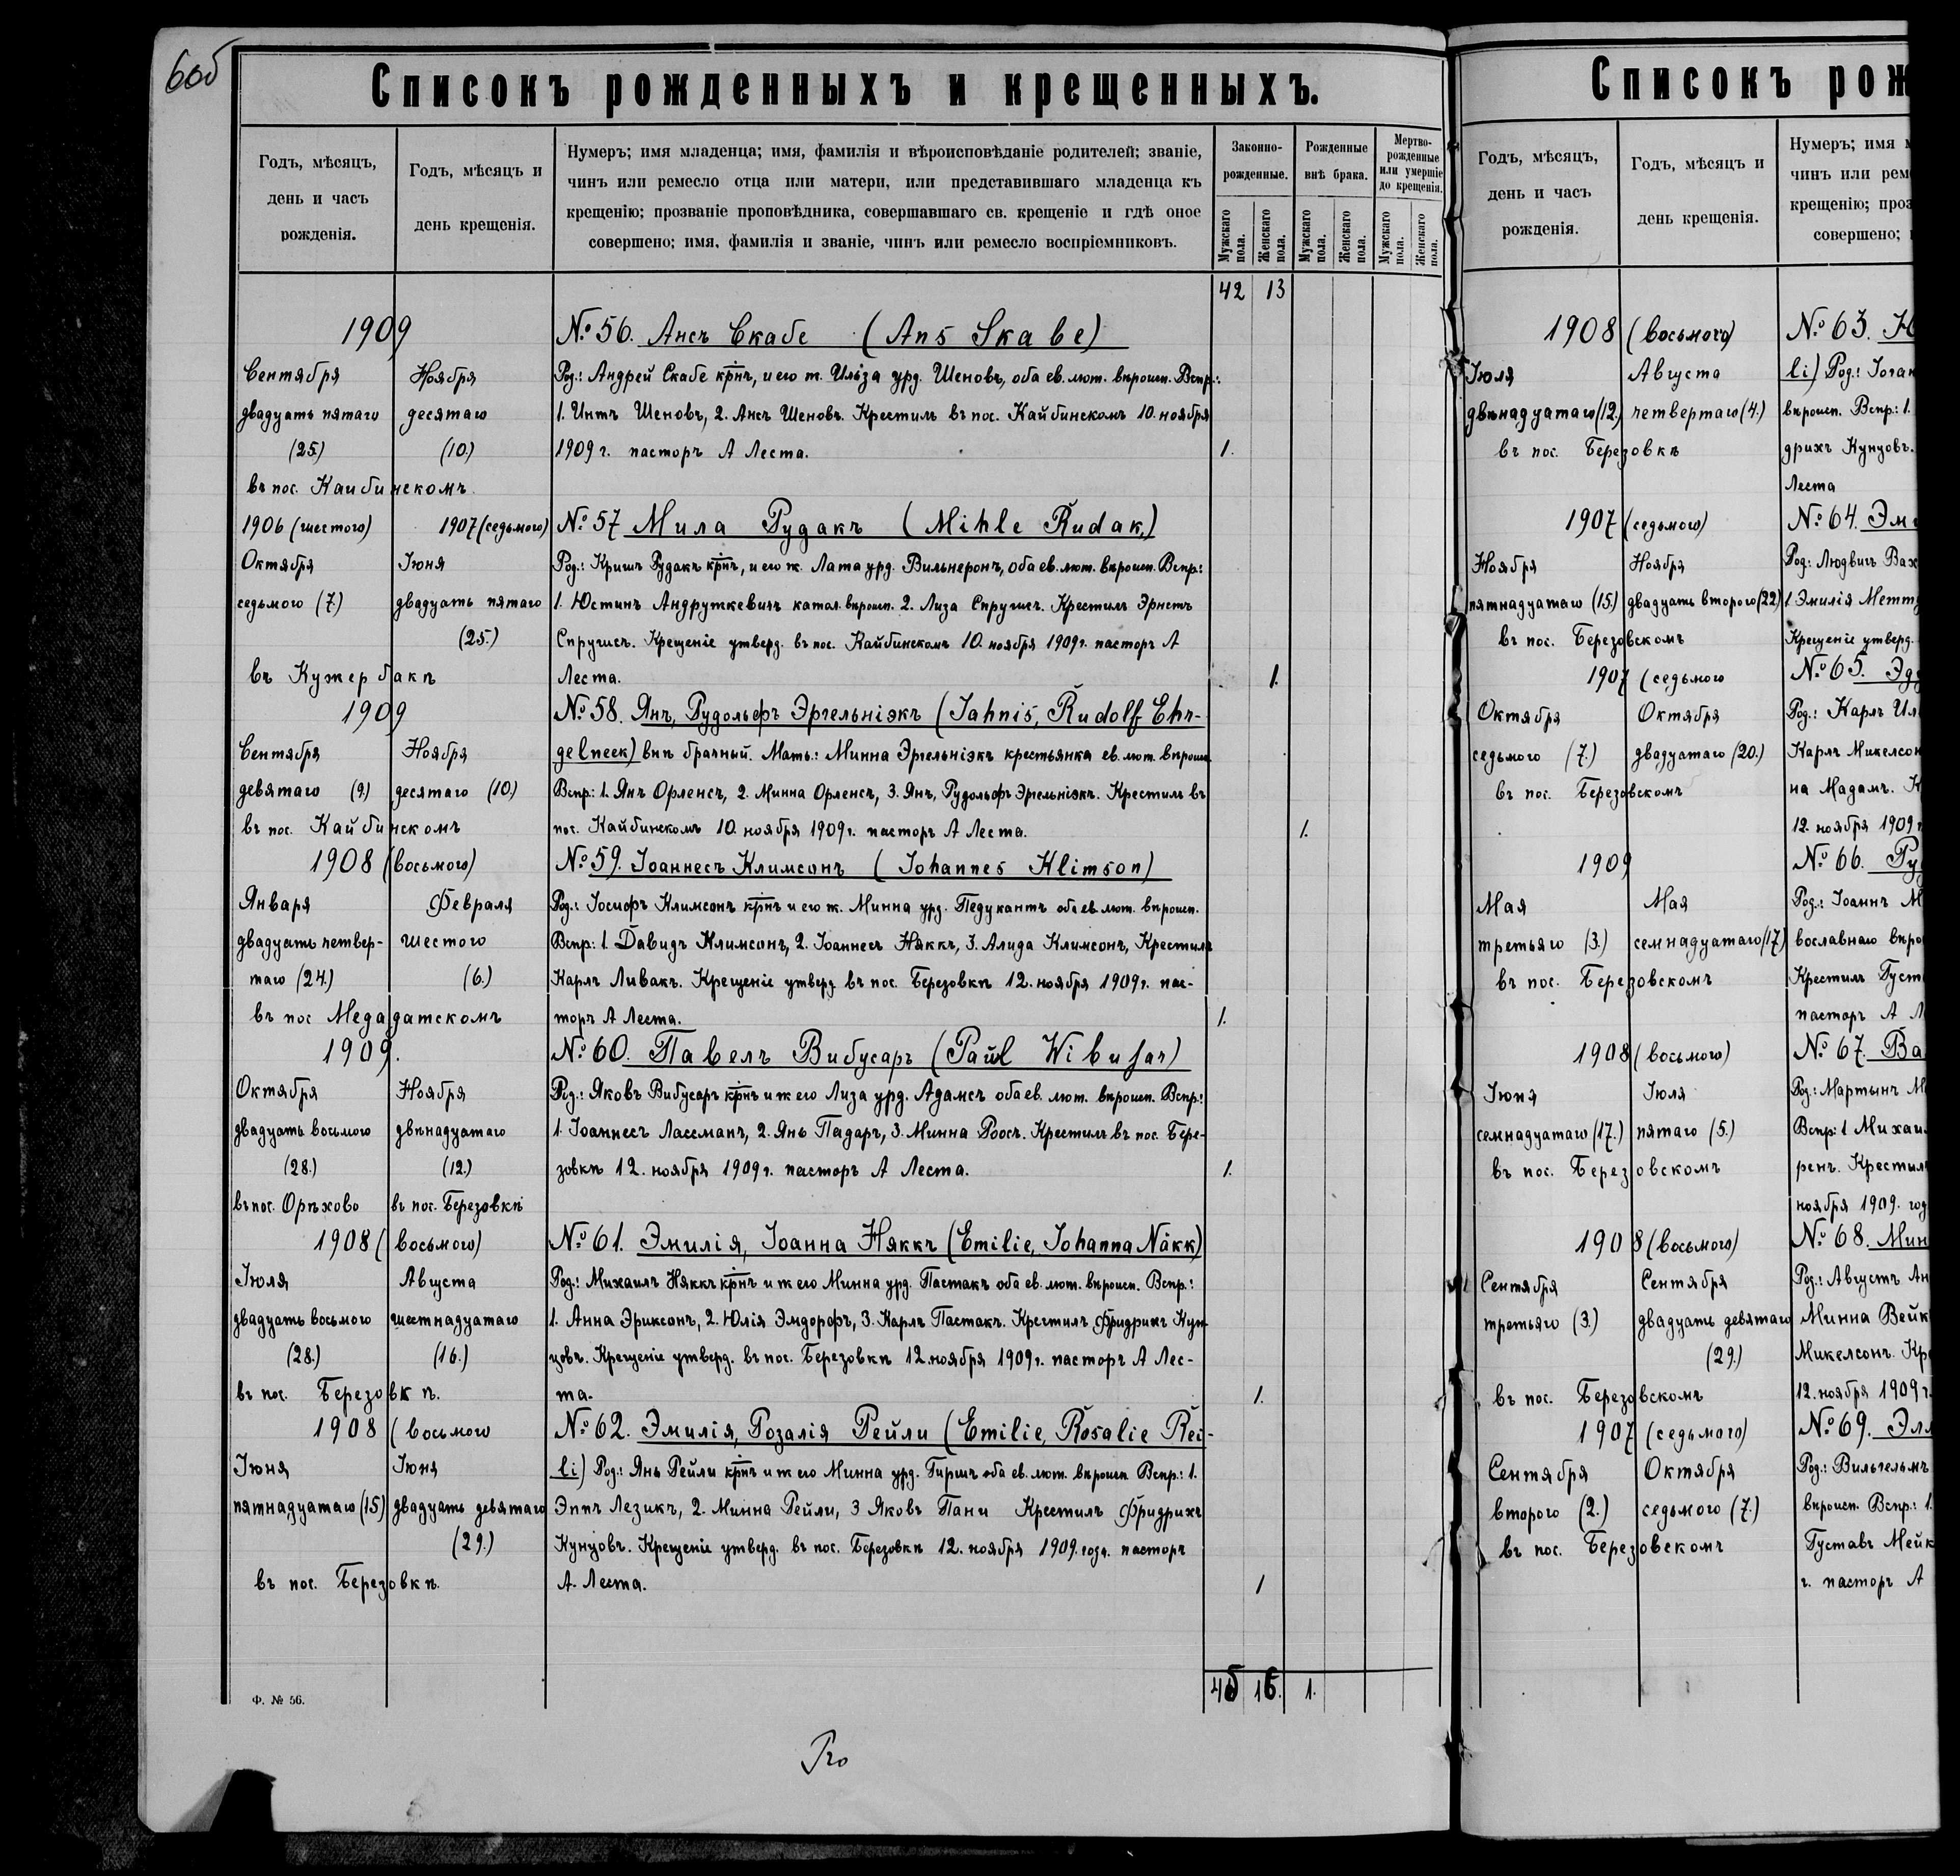 60б
Списокъ рожденныхъ и крещенныхъ.
Годъ, мѣсяцъ, день и часъ рожденія.
Годъ, мѣсяцъ и день крещенія.
Нумеръ; имя младенца; имя, фамилія и вѣроисповѣданіе родителей; званіе,
чинъ или ремесло отца или матери, или представившаго младенца къ
крещенію; прозваніе проповѣдника, совершавшаго св. крещеніе и гдѣ оное
совершено; имя, фамилія и званіе, чинъ или ремесло воспріемниковъ.
Законно-рожденные.
Рожденные внѣ брака.
Мертво-рожденные или умершіе до крещенія.
Мужскаго пола. Женскаго пола. Мужскаго пола. Женскаго пола. Мужскаго пола. Женскаго пола.
42 13
1909 №56. Ансъ Скабе (Ans Skabe)
Сентября Ноября Род.: Андрей Скабе крнъ, и его ж. Ильза урд. Шеновъ, оба ев. лют. вѣроисп. Вспр.:
двадцать пятаго десятаго 1. Интъ Шеновъ, 2. Ансъ Шеновъ. Крестилъ въ пос. Кайбинскомъ 10. ноября
(25.) (10.) 1909 г. пасторъ А Леста. 1.
въ пос. Каибинскомъ
1906 (шестого) 1907 (седьмого) №57 Мила Рудакъ (Mihle Rudak.)
Октября Іюня Род.: Кришъ Рудакъ крнъ, и его ж. Лата урд. Вильнеронъ, оба ев. лют. вѣроисп. Вспр:
седьмого (7.) двадцать пятаго 1. Юстинъ Андруткевичъ катол. вѣроисп. 2. Лиза Спругисъ. Крестилъ Эрнстъ
(25.) Спругисъ. Крещеніе утверд. въ пос. Кайбинскомъ 10. ноября 1909 г. пасторъ А
въ Кужербакѣ Леста. 1.
1909 №58. Янъ, Рудольфъ Эргельніэкъ (Jahnis, Rudolf Ehr-
Сентября Ноября gelneek) внѣ брачный. Мать: Минна Эргельніэкъ крестьянка ев. лют. вѣроисп.
девятаго (9.) десятаго (10.) Вспр: 1. Янъ Орленсъ, 2. Минна Орленсъ, 3. Янъ, Рудольфъ Эргельніэкъ. Крестилъ въ
въ пос. Кайбинскомъ пос. Кайбинскомъ 10. ноября 1909 г. пасторъ А Леста. 1.
1908 (восьмого) №59. Іоаннесъ Климсонъ (Johannes Klimson)
Января Февраля Род.: Іосифъ Климсонъ крнъ и его ж. Минна урд. Педукантъ оба ев. лют. вѣроисп.
двадцать четвер- шестого Вспр: 1. Давидъ Климсонъ, 2. Іоаннесъ Няккъ, 3. Алида Климсонъ, Крестилъ
таго (24.) (6.) Карлъ Ливакъ. Крещеніе утверд въ пос. Березовкѣ 12. ноября 1909 г. пас-
въ пос Медадатскомъ торъ А Леста. 1.
1909. №60. Павелъ Вибусаръ (Paul Wibusar)
Октября Ноября Род.: Яковъ Вибусаръ крнъ и ж его Лиза урд. Адамсъ оба ев. лют. вѣроисп. Вспр:
двадцать восьмого двѣнадцатаго 1. Іоаннесъ Лассманъ, 2. Янъ Падаръ, 3. Минна Роосъ. Крестилъ въ пос. Бере-
(28.) (12.) зовкѣ 12. ноября 1909 г. пасторъ А Леста. 1.
въ пос. Орѣхово въ пос. Березовкѣ
1908 (восьмого) №61. Эмилія, Іоанна Няккъ (Emilie, Johanna Näkk)
Іюля Августа Род.: Михаилъ Няккъ крнъ и ж его Минна урд. Пастакъ оба ев. лют. вѣроисп. Вспр.:
двадцать восьмого шестнадцатаго 1. Анна Эриксонъ, 2. Юлія Эмдорофъ, 3. Карлъ Пастакъ. Крестилъ Фридрихъ Кун-
(28.) (16.) цовъ. Крещеніе утверд. въ пос. Березовкѣ 12. ноября 1909 г. пасторъ А Лес-
въ пос. Березовкѣ. та. 1.
1908 (восьмого №62. Эмилія, Розалія Рейли (Emilie, Rosalie Rei-
Іюня Іюня li) Род.: Янъ Рейли крнъ и ж его Минна урд. Гиршъ оба ев. лют. вѣроисп Вспр.: 1.
пятнадцатаго (15) двадцать девятаго Эппъ Лезикъ, 2. Минна Рейли, 3 Яковъ Пани Крестилъ Фридрихъ
(29.) Кунцовъ. Крещеніе утверд. въ пос. Березовкѣ 12. ноября 1909. года. пасторъ
въ пос. Березовкѣ. А. Леста. 1
16. 1.
Ф. № 56.
Списокъ рож
Годъ, мѣсяцъ, день и часъ рожденія.
Годъ, мѣсяцъ и день крещенія.
Нумеръ; имя м
чинъ или рем
крещенію; проз
совершено;
1908 (восьмого) №63. Ю
Іюля Августа li) Род.: Іоган
двѣнадцатаго (12.) четвертаго (4.) вѣроисп. Вспр: 1.
въ пос. Березовкѣ дрихъ Кунцовъ.
Леста
1907 (седьмого) №64. Эм
Ноября Ноября Род: Людвигъ Вах
пятнадцатаго (15.) двадцать второго (22) 1 Эмилія Метт
въ пос. Березовскомъ Крещеніе утверд.
1907 (седьмого №65. Эд
Октября Октября Род.: Карлъ Ил
седьмого (7.) двадцатаго (20.) Карлъ Микелсон
въ пос. Березовскомъ на Мадамъ. К
12. ноября 1909
1909 №66. Ру
Мая Мая Род.: Іоаннъ М
третьяго (3.) семнадцатаго (17) вославнаго вѣро
въ пос. Березовскомъ Крестилъ Густ
пасторъ А Л
1908 (восьмого) №67. Ва
Іюня Іюля Род: Мартынъ М
семнадцатаго (17.) пятаго (5.) Вспр: 1 Михаи
въ пос. Березовскомъ ренъ. Крестилъ
ноября 1909. год
1908 (восьмого) №68. Мин
Сентября Сентября Род.: Августъ Ан
третьяго (3.) двадцать девятаго Минна Вейк
(29.) Микелсонъ. Кр
въ пос. Березовскомъ 12. ноября 1909 г.
1907 (седьмого) №69. Элл
Сентября Октября Род.: Вильгельмъ
второго (2.) седьмого (7.) вѣроисп. Вспр.: 1.
въ пос. Березовскомъ Густавъ Мейк
г. пасторъ А